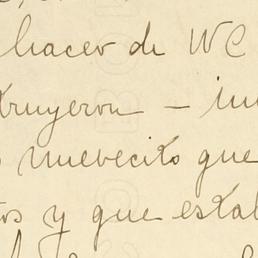 hacer de WC
truyeron - in
nuevecito que
tos y que estab